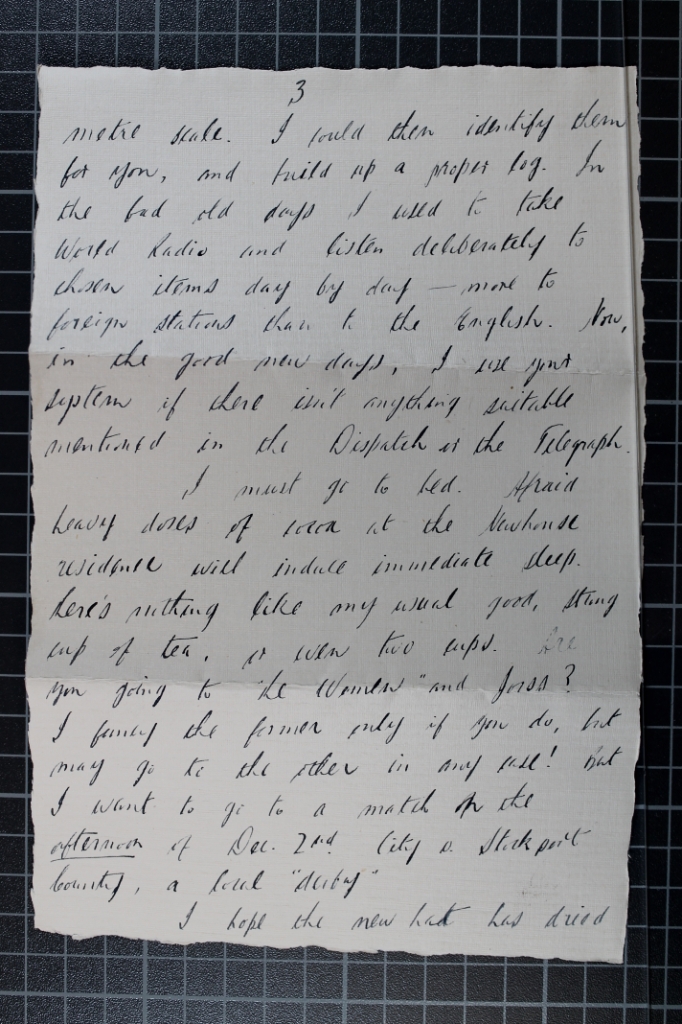 3
metre scale. I could then identify them
for you, and build up a proper log. In
the bad old days I used to take
World Radio and listen deliberately to
chosen items day by day — more to
foreign stations than to the English. Now,
in the good new days, I use your
system if there isn't anything suitable
mentioned in the Dispatch or the Telegraph.
I must go to bed. Afraid
heavy doses of cocoa at the Newhouse
residence will induce immediate sleep.
here's nothing like my usual good, strong
cup of tea, or even two cups. Are
you going to "the Women" and Jooss?
I fancy the former only if you do, but
may go to the other in any case! But
I want to go to a match on the
afternoon of Dec. 2nd. City v. Stockport
County, a local "derby"
I hope the new hat has dried